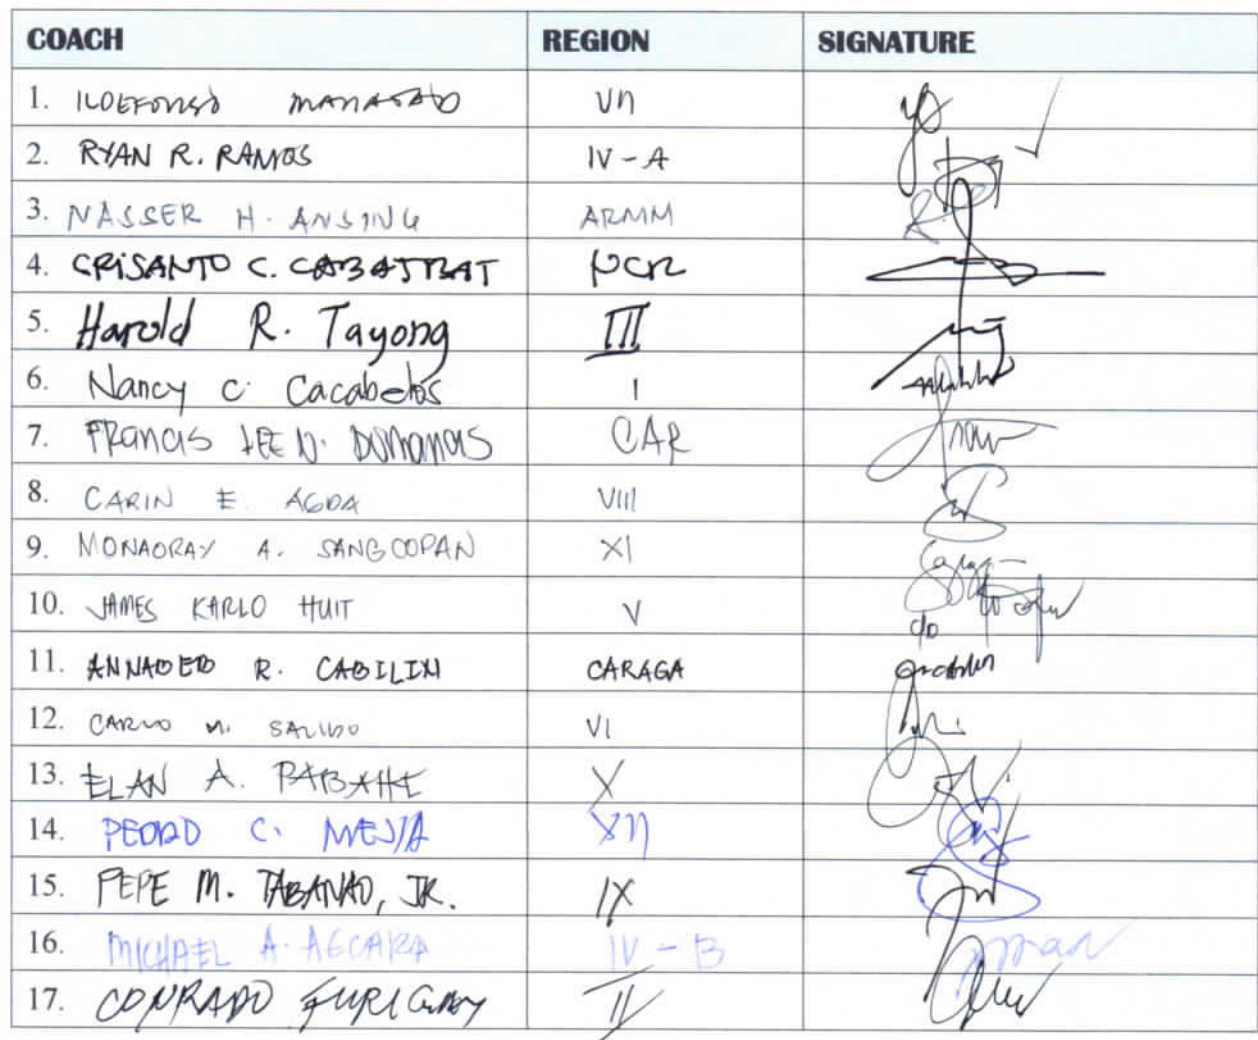 COACH REGION SIGNATURE
1. ILDEFONSO MANATAD VII
2. RYAN R. RAMOS IV-A
3. NASSER H. ANSING ARMM
4. CRISANTO C. CABATBAT NCR
5. Harold R. Tayong III
6. Nancy C. Cacabelos I
7. FRANCIS LEE N. DUMANAS CAR
8. CARIN E. AGDA VIII
9. MONAORAY A. SANGCOPAN XI
10. JAMES KARLO HUIT V
11. R. CABILIN CARAGA
12. CARLO M. SALIDO VI
13. ELAN A. PABAHE X
14. PEDRO C. MEJIA XII
15. PEPE M. TABANAO, JR. IX
16. MICHAEL A. AGCARA IV-B
17. CONRADO II